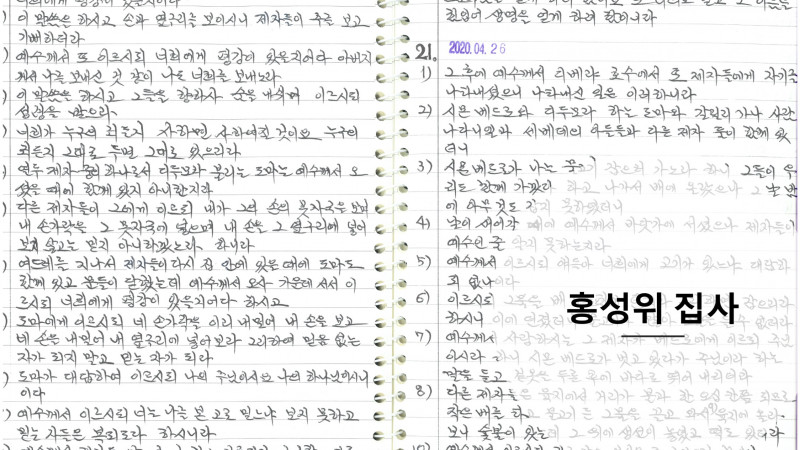 너희에게 평강이 있을지어다
) 이 말씀을 하시고 손과 옆구리를 보이시니 제자들이 주를 보고
기뻐하더라
) 예수께서 또 이르시되 너희에게 평강이 있을지어다 아버지
께서 나를 보내신 것 같이 나도 너희를 보내노라
) 이 말씀을 하시고 그들을 향하사 숨을 내쉬며 이르시되
성령을 받으라
) 너희가 누구의 죄든지 사하면 사하여질 것이요 누구의
죄든지 그대로 두면 그대로 있으리라
) 열두 제자 중의 하나로서 디두모라 불리는 도마는 예수께서 오
셨을 때에 함께 있지 아니한지라
) 다른 제자들이 그에게 이르되 내가 그의 손의 못자국을 보며
내 손가락을 그 못자국에 넣으며 내 손을 그 옆구리에 넣어
보지 않고는 믿지 아니하겠노라 하니라
) 여드레를 지나서 제자들이 다시 집 안에 있을 때에 도마도
함께 있고 문들이 닫혔는데 예수께서 오사 가운데 서서 이
르시되 너희에게 평강이 있을지어다 하시고
) 도마에게 이르시되 네 손가락을 이리 내밀어 내 손을 보고
네 손을 내밀어 내 옆구리에 넣어보라 그리하여 믿음 없는
자가 되지 말고 믿는 자가 되라
) 도마가 대답하여 이르되 나의 주님이시요 나의 하나님이시니
이다
) 예수께서 이르시되 너는 나를 본 고로 믿느냐 보지 못하고
믿는 자들은 복되도다 하시니라
힘입어 생명을 얻게 하려 함이니라
21. 2020.04.26
1) 그 후에 예수께서 디베랴 호수에서 또 제자들에게 자기를
나타내셨으니 나타내신 일은 이러하니라
2) 시몬 베드로와 디두모라 하는 도마와 갈릴리 가나 사람
나다나엘과 세베대의 아들들과 다른 제자 둘이 함께 있
더니
3) 시몬 베드로가 나는 물고기 잡으러 가노라 하니 그들이 우
리도 함께 가겠다 하고 나가서 배에 올랐으나 그 날 밤
에 아무것도 잡지 못하였더니
4) 날이 새어갈 때에 예수께서 바닷가에 서셨으나 제자들이
예수인 줄 알지 못하는지라
5) 예수께서 이르시되 얘들아 너희에게 고기가 있느냐 대답하
되 없나이다
6) 이르시되 그물을 배 잡으리라
하시니 이에 던졌더니 없더라
7) 예수께서 사랑하시는 그 제자가 베드로에게 이르되 주님
이시라 하니 시몬 베드로가 벗고 있다가 주님이라 하는
말을 듣고 겉옷을 두른 후에 바다로 뛰어 내리더라
8) 다른 제자들은 육지에서 거리가 불과 한 오십 칸쯤 되므로
작은 배를 타고 물고기 든 그물을 끌고 와서 육지에 올라
보니 숯불이 있는데 그 위에 생선이 놓였고 떡도 있더라
홍성위 집사